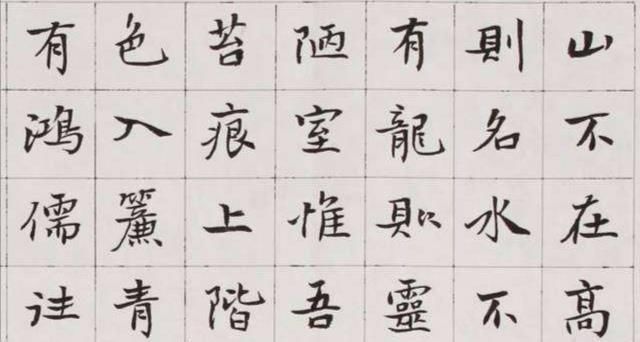 山不在高
則名水不
有龍則靈
陋室惟吾
苔痕上階
色入簾青
有鴻儒往